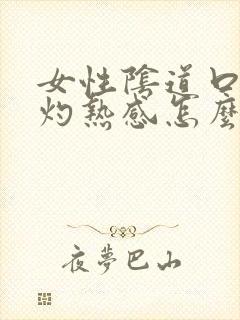 女性陰道口
灼熱感怎麼
夜夢巴山